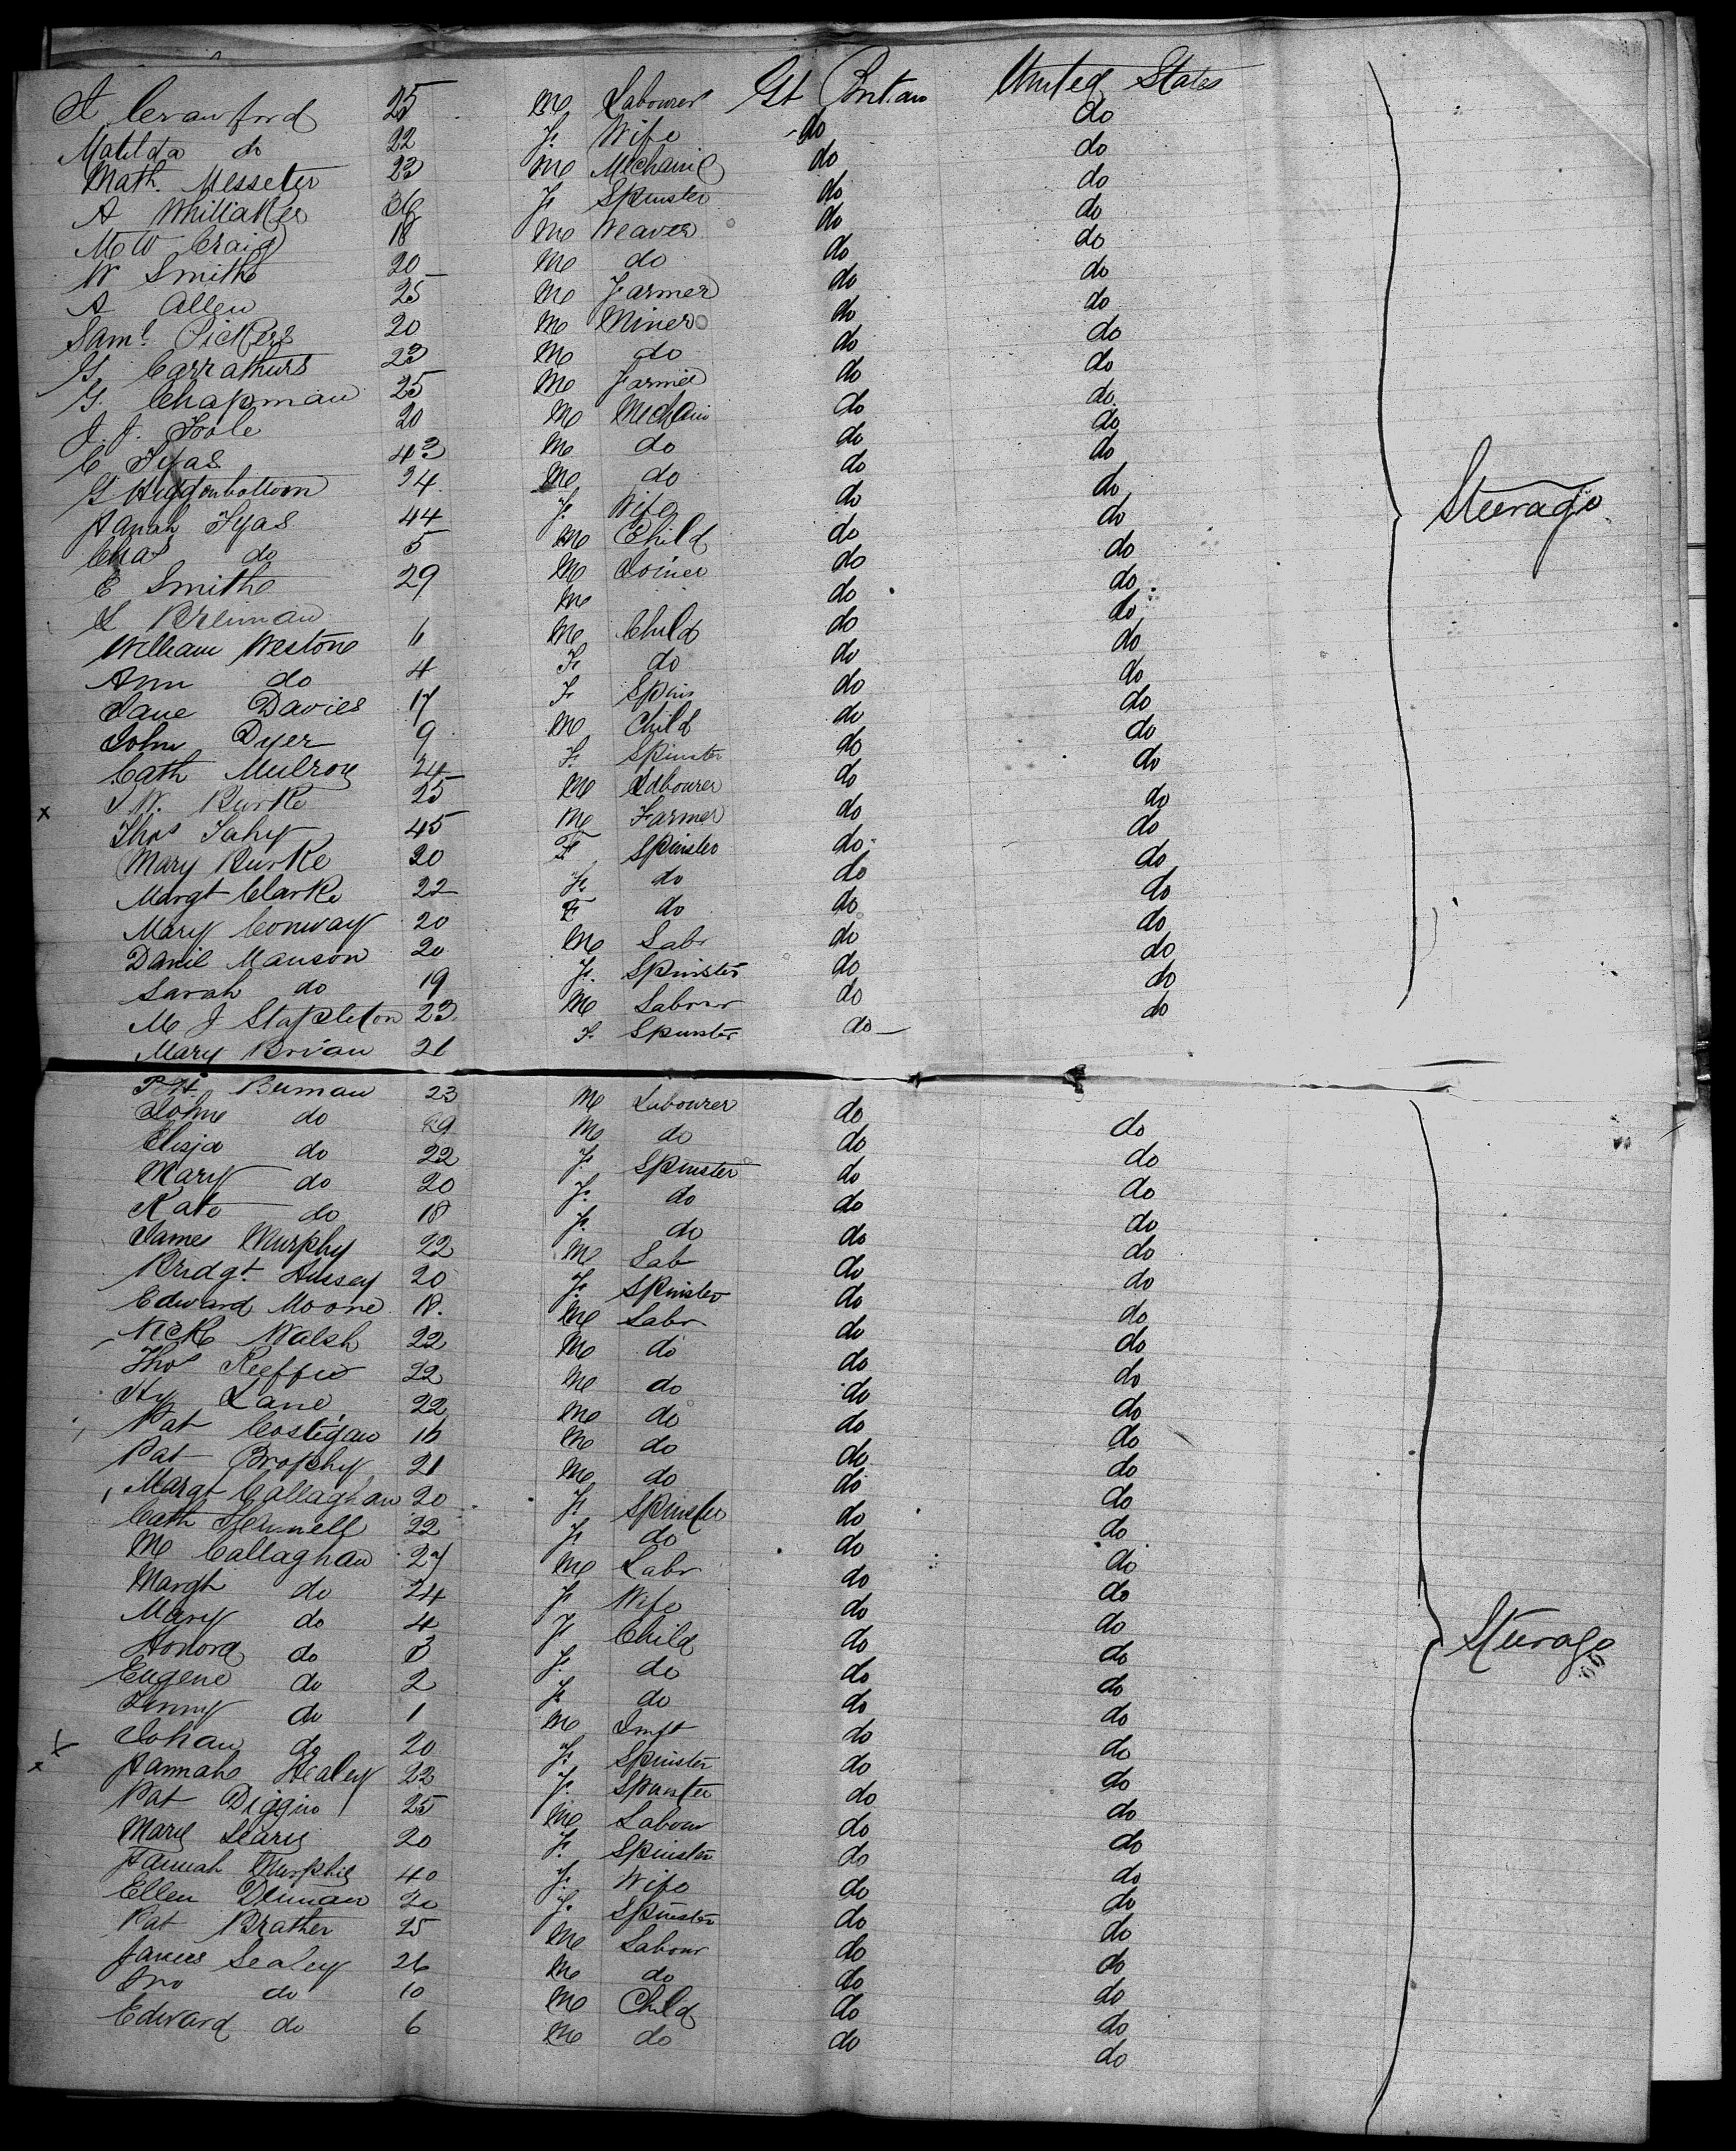 A Crawford 25 M Labourer Gt Britain United States
Matilda do 22 F. Wife do do
Math. Messeter 23 M Mechanic do do
A Whittaker 36 F Spinster do do
M W Craig 18 M Weaver do do
W Smith 20 M do do do
A Allen 25 M Farmer do do
Saml. Pickers 20 M Miner do do
G. Carrathurs 23 M do do do
G. Chapman 25 M Farmer do do
J. J. Poole 20 M Mechani do do
C Tyas 43 M do do do
G Higgonbottom 24 M do do do
Hanah Tyas 44 F. Wife do do
Chas do 5 M Child do do
E Smith 29 M Joiner do do
M do do
William Weston 6 M Child do do
Ann do 4 F. do do do
Jane Davies 17 F. Spin do do
John Dyer 9 M Child do do
Cath Mulroy 24 F. Spinster do do
J W. Burke 25 M Labourer do do
x Thos Fahy 45 M Farmer do do
Mary Burke 20 F Spinster do do
Margt Clarke 22 F. do do do
Mary Conway 20 F do do do
Daniel Manson 20 M Labr do do
Sarah do 19 F. Spinster do do
M J Stapleton 23 M Labour do do
Mary Brian 21 F. Spinster do do
Steerage
23 M Labourer do do
John do 29 M do do do
Eliza do 22 F. Spinster do do
Mary do 20 F. do do do
Kate do 18 F. do do do
James Murphy 22 M Lab do do
Bridgt. Hussey 20 F. Spinster do do
Edward Moore 18. M Labr do do
Nick Walsh 22 M do do do
Thos Keeffe 22 M do do do
Hy Lane 22 M do do do
Pat Costigan 16 M do do do
Pat Brophy 21 M do do do
Margt Callaghan 20 F. Spinster do do
Cath 22 F. do do do
M Callaghan 27 M Labr do do
Margt do 24 F Wife do do
Mary do 4 F Child do do
Honora do 3 F. do do do
Eugene do 2 F. do do do
Jenny do 1 M Inft do do
Johan do 20 F. Spinster do do
x Hannah Healey 22 F. Spinster do do
Pat Diggin 25 M Labour do do
Mary Leary 20 F. Spinster do do
Hannah Murphy 40 F. Wife do do
Ellen 20 F. Spinster do do
Pat Brather 25 M Labour do do
James Sealey 26 M do do do
Jno do 10 M Child do do
Edward do 6 M do do do
Steerage